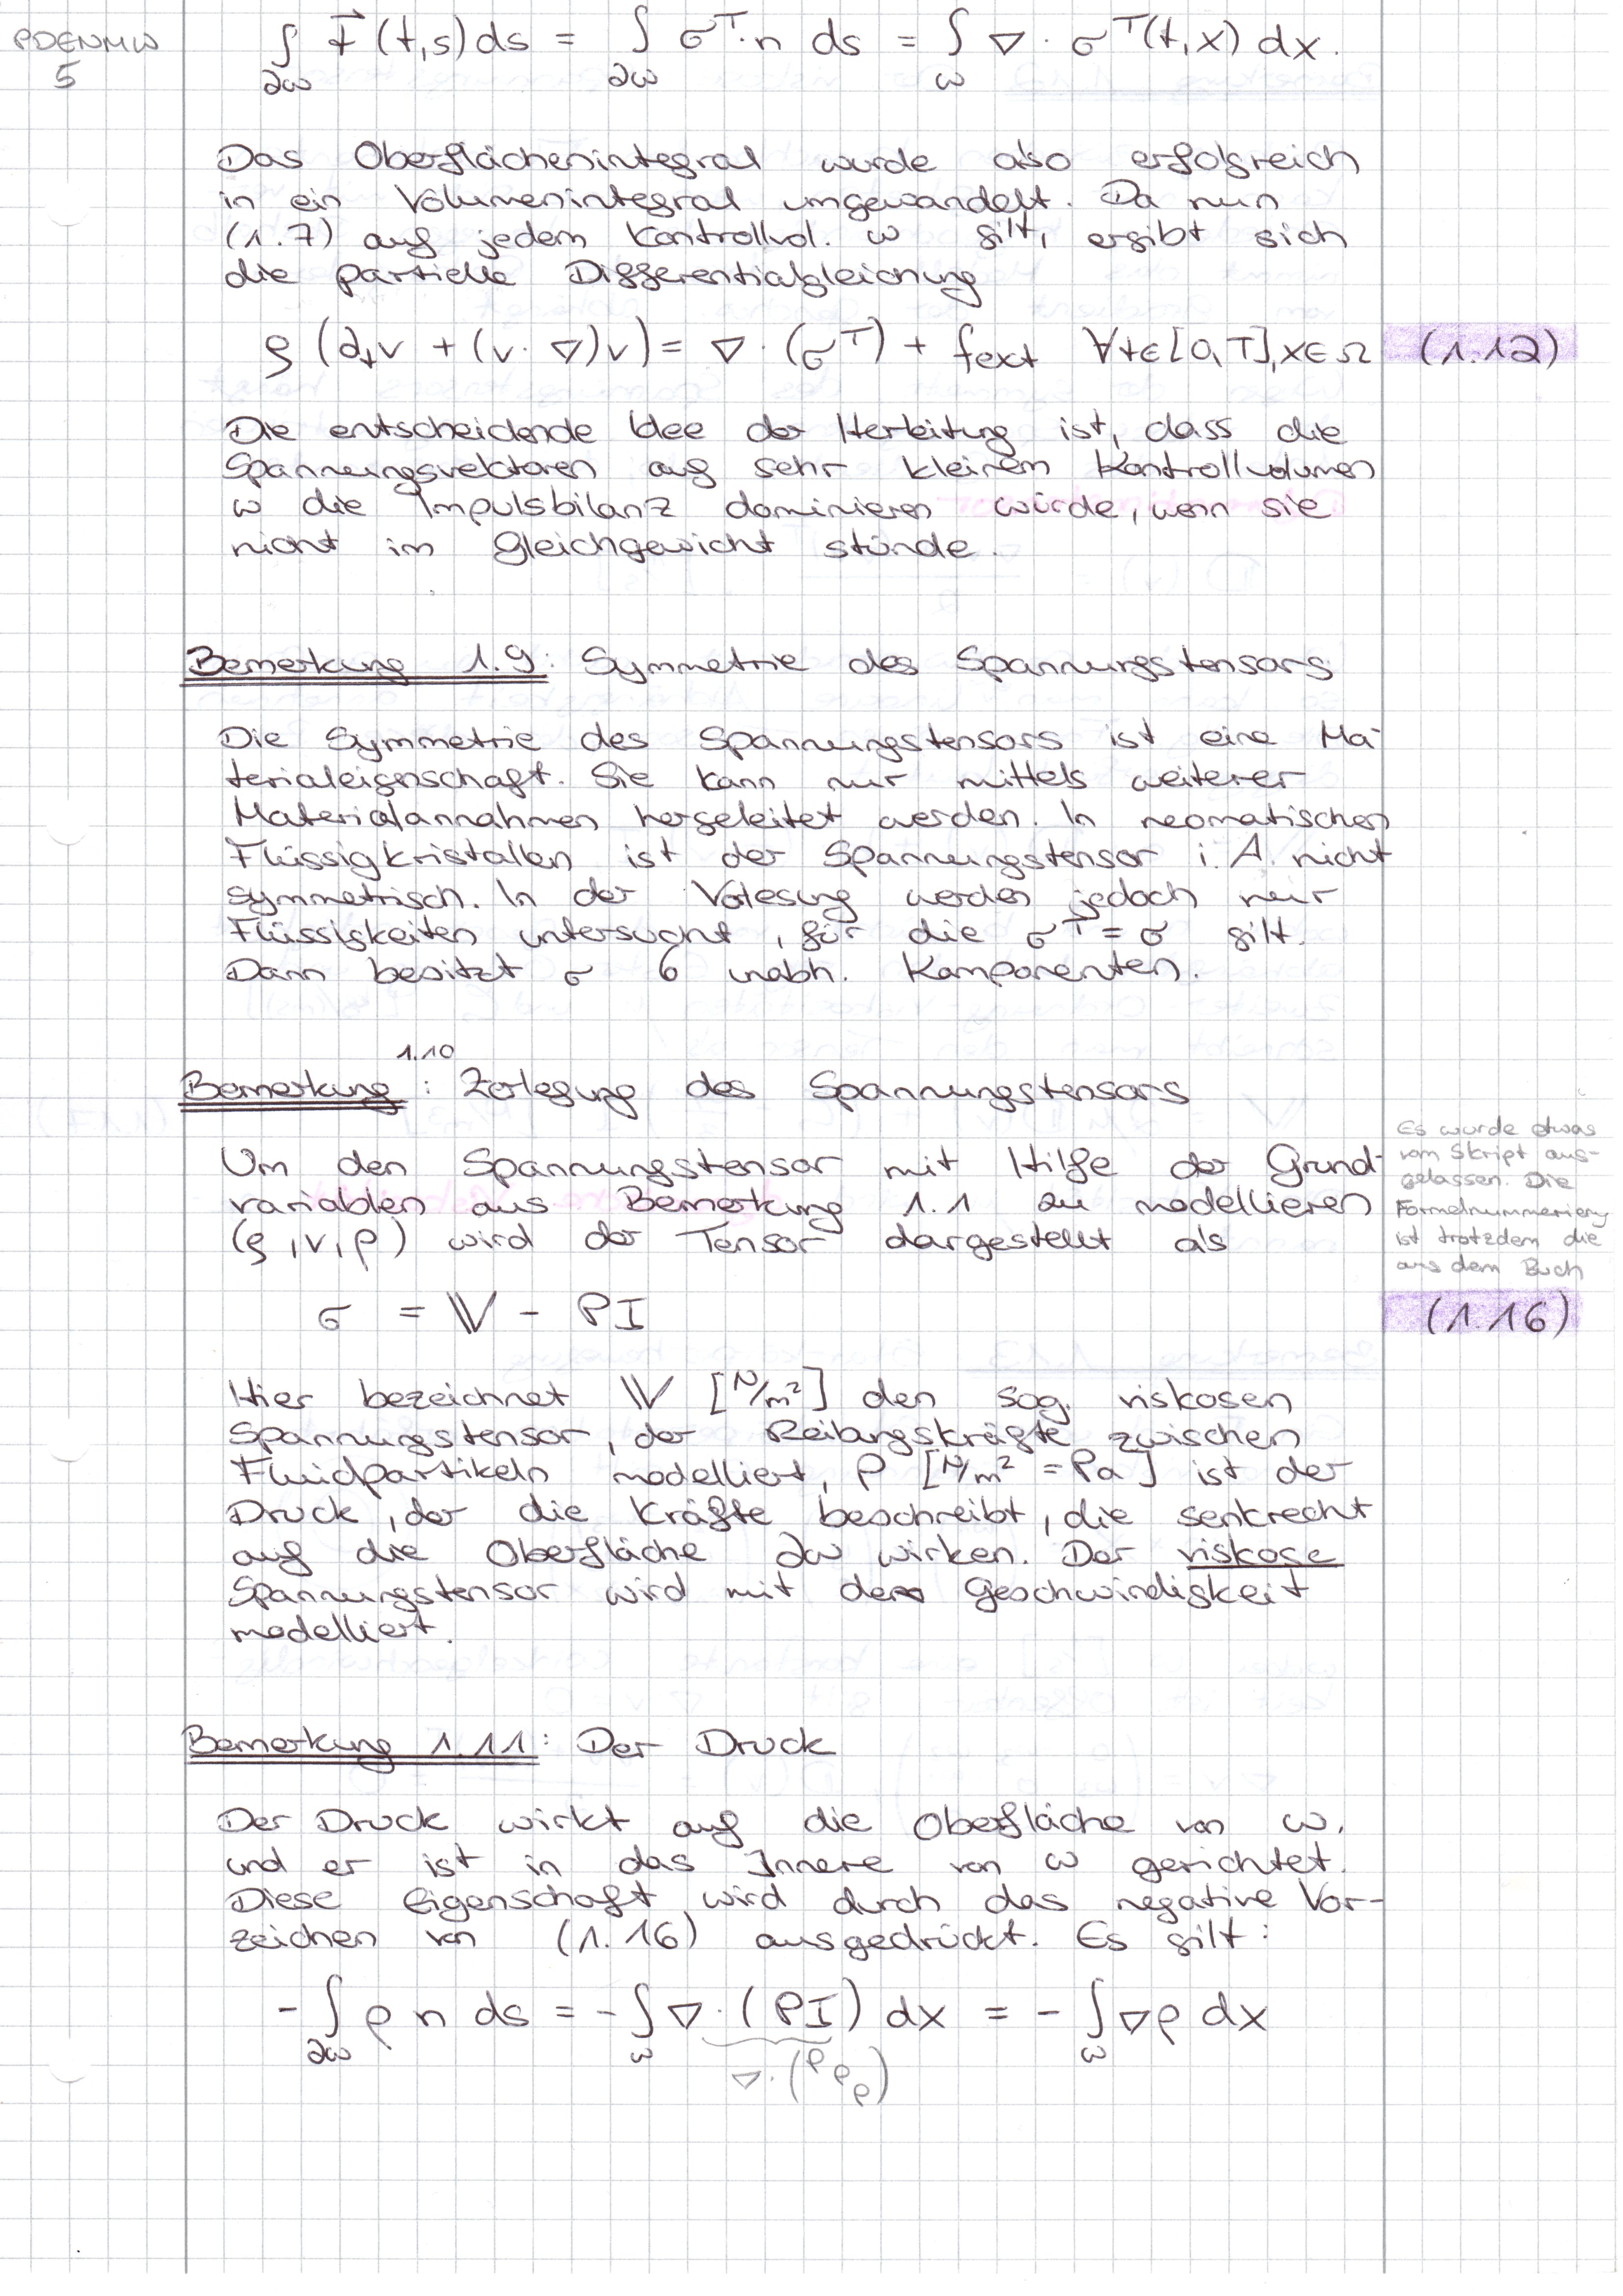 PDENMW
5
∫_∂ω F⃗(t,s) ds = ∫_∂ω σ^T·n ds = ∫_ω ∇· σ^T(t,x) dx.
Das Oberflächenintegral wurde also erfolgreich
in ein Volumenintegral umgewandelt. Da nun
(1.7) auf jedem Kontrollvol. ω gilt, ergibt sich
die partielle Differentialgleichung
ρ (∂_t v + (v·∇)v) = ∇·(σ^T) + f_ext ∀t∈[0,T], x∈Ω (1.12)
Die entscheidende Idee der Herleitung ist, dass die
Spannungsvektoren auf sehr kleinem Kontrollvolumen
ω die Impulsbilanz dominieren würde, wenn sie
nicht im Gleichgewicht stünde.
Bemerkung 1.9: Symmetrie des Spannungstensors
Die Symmetrie des Spannungstensors ist eine Ma-
terialeigenschaft. Sie kann nur mittels weiterer
Materialannahmen hergeleitet werden. In neomatischen
Flüssigkristallen ist der Spannungstensor i. A. nicht
symmetrisch. In der Vorlesung werden jedoch nur
Flüssigkeiten untersucht, für die σ^T = σ gilt.
Dann besitzt σ 6 unabh. Komponenten.
1.10
Bemerkung: Zerlegung des Spannungstensors
Um den Spannungstensor mit Hilfe der Grund-
variablen aus Bemerkung 1.1 zu modellieren
(ρ, v, p) wird der Tensor dargestellt als
Es wurde etwas
vom Skript aus-
gelassen. Die
Formelnummerierung
ist trotzdem die
aus dem Buch
σ = 𝕍 - PI (1.16)
Hier bezeichnet 𝕍 [N/m²] den sog. viskosen
Spannungstensor, der Reibungskräfte zwischen
Fluidpartikeln modelliert, P [N/m² = Pa] ist der
Druck, der die Kräfte beschreibt, die senkrecht
auf die Oberfläche ∂ω wirken. Der viskose
Spannungstensor wird mit der Geschwindigkeit
modelliert.
Bemerkung 1.11: Der Druck
Der Druck wirkt auf die Oberfläche von ω,
und er ist in das Innere von ω gerichtet.
Diese Eigenschaft wird durch das negative Vor-
zeichen von (1.16) ausgedrückt. Es gilt:
-∫_∂ω p n ds = -∫_ω ∇·(PI) dx = -∫_ω ∇p dx
∇·(p p p)